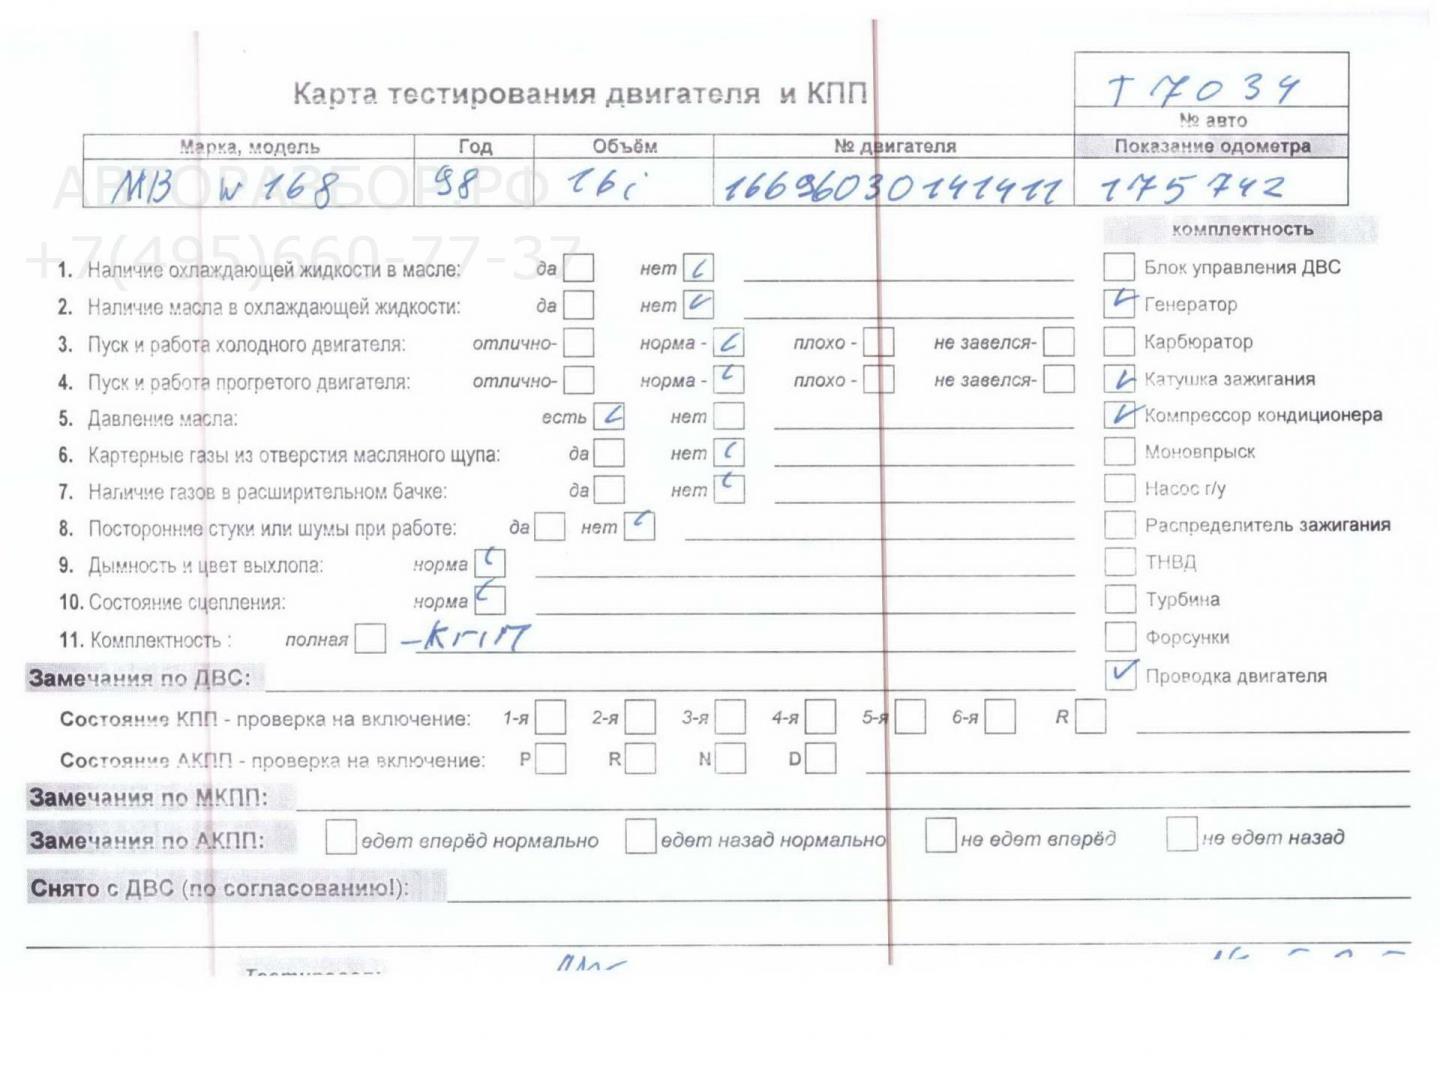 Карта тестирования двигателя и КПП
Т 7034
№ авто
Марка, модель Год Объём № двигателя Показание одометра
МВ W168 98 16i 16696030141411 175742
АВТОРАЗБОР.РФ
+7(495)660-77-37
комплектность
1. Наличие охлаждающей жидкости в масле: да нет
Блок управления ДВС
2. Наличие масла в охлаждающей жидкости: да нет
Генератор
3. Пуск и работа холодного двигателя: отлично- норма - плохо - не завелся-
Карбюратор
4. Пуск и работа прогретого двигателя: отлично- норма - плохо - не завелся-
Катушка зажигания
5. Давление масла: есть нет
Компрессор кондиционера
6. Картерные газы из отверстия масляного щупа: да нет
Моновпрыск
7. Наличие газов в расширительном бачке: да нет
Насос г/у
8. Посторонние стуки или шумы при работе: да нет
Распределитель зажигания
9. Дымность и цвет выхлопа: норма
ТНВД
10. Состояние сцепления: норма
Турбина
11. Комплектность : полная
Форсунки
Замечания по ДВС:
Проводка двигателя
Состояние КПП - проверка на включение: 1-я 2-я 3-я 4-я 5-я 6-я R
Состояние АКПП - проверка на включение: P R N D
Замечания по МКПП:
Замечания по АКПП: едет вперёд нормально едет назад нормально не едет вперёд не едет назад
Снято с ДВС (по согласованию!):